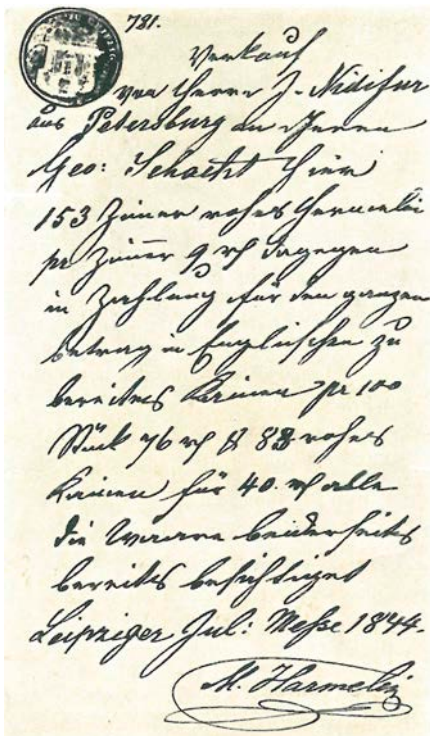 781.
Verkauf
von Herrn J. Nidifur
aus Petersburg an Herrn
Geo: Schacht hier
153 Zimer rohes Hermelin
pr Zimer 9 rh dagegen
in Zahlung für den ganzen
betrag in Englischen zu
bereitetes Kaninen pr 100
Stück 76 rh & rohes
Kaninen für 40. rh alle
die Waare beiderseits
bereits besichtiget
Leipziger Jul: Messe 1844.
M. Harmelin